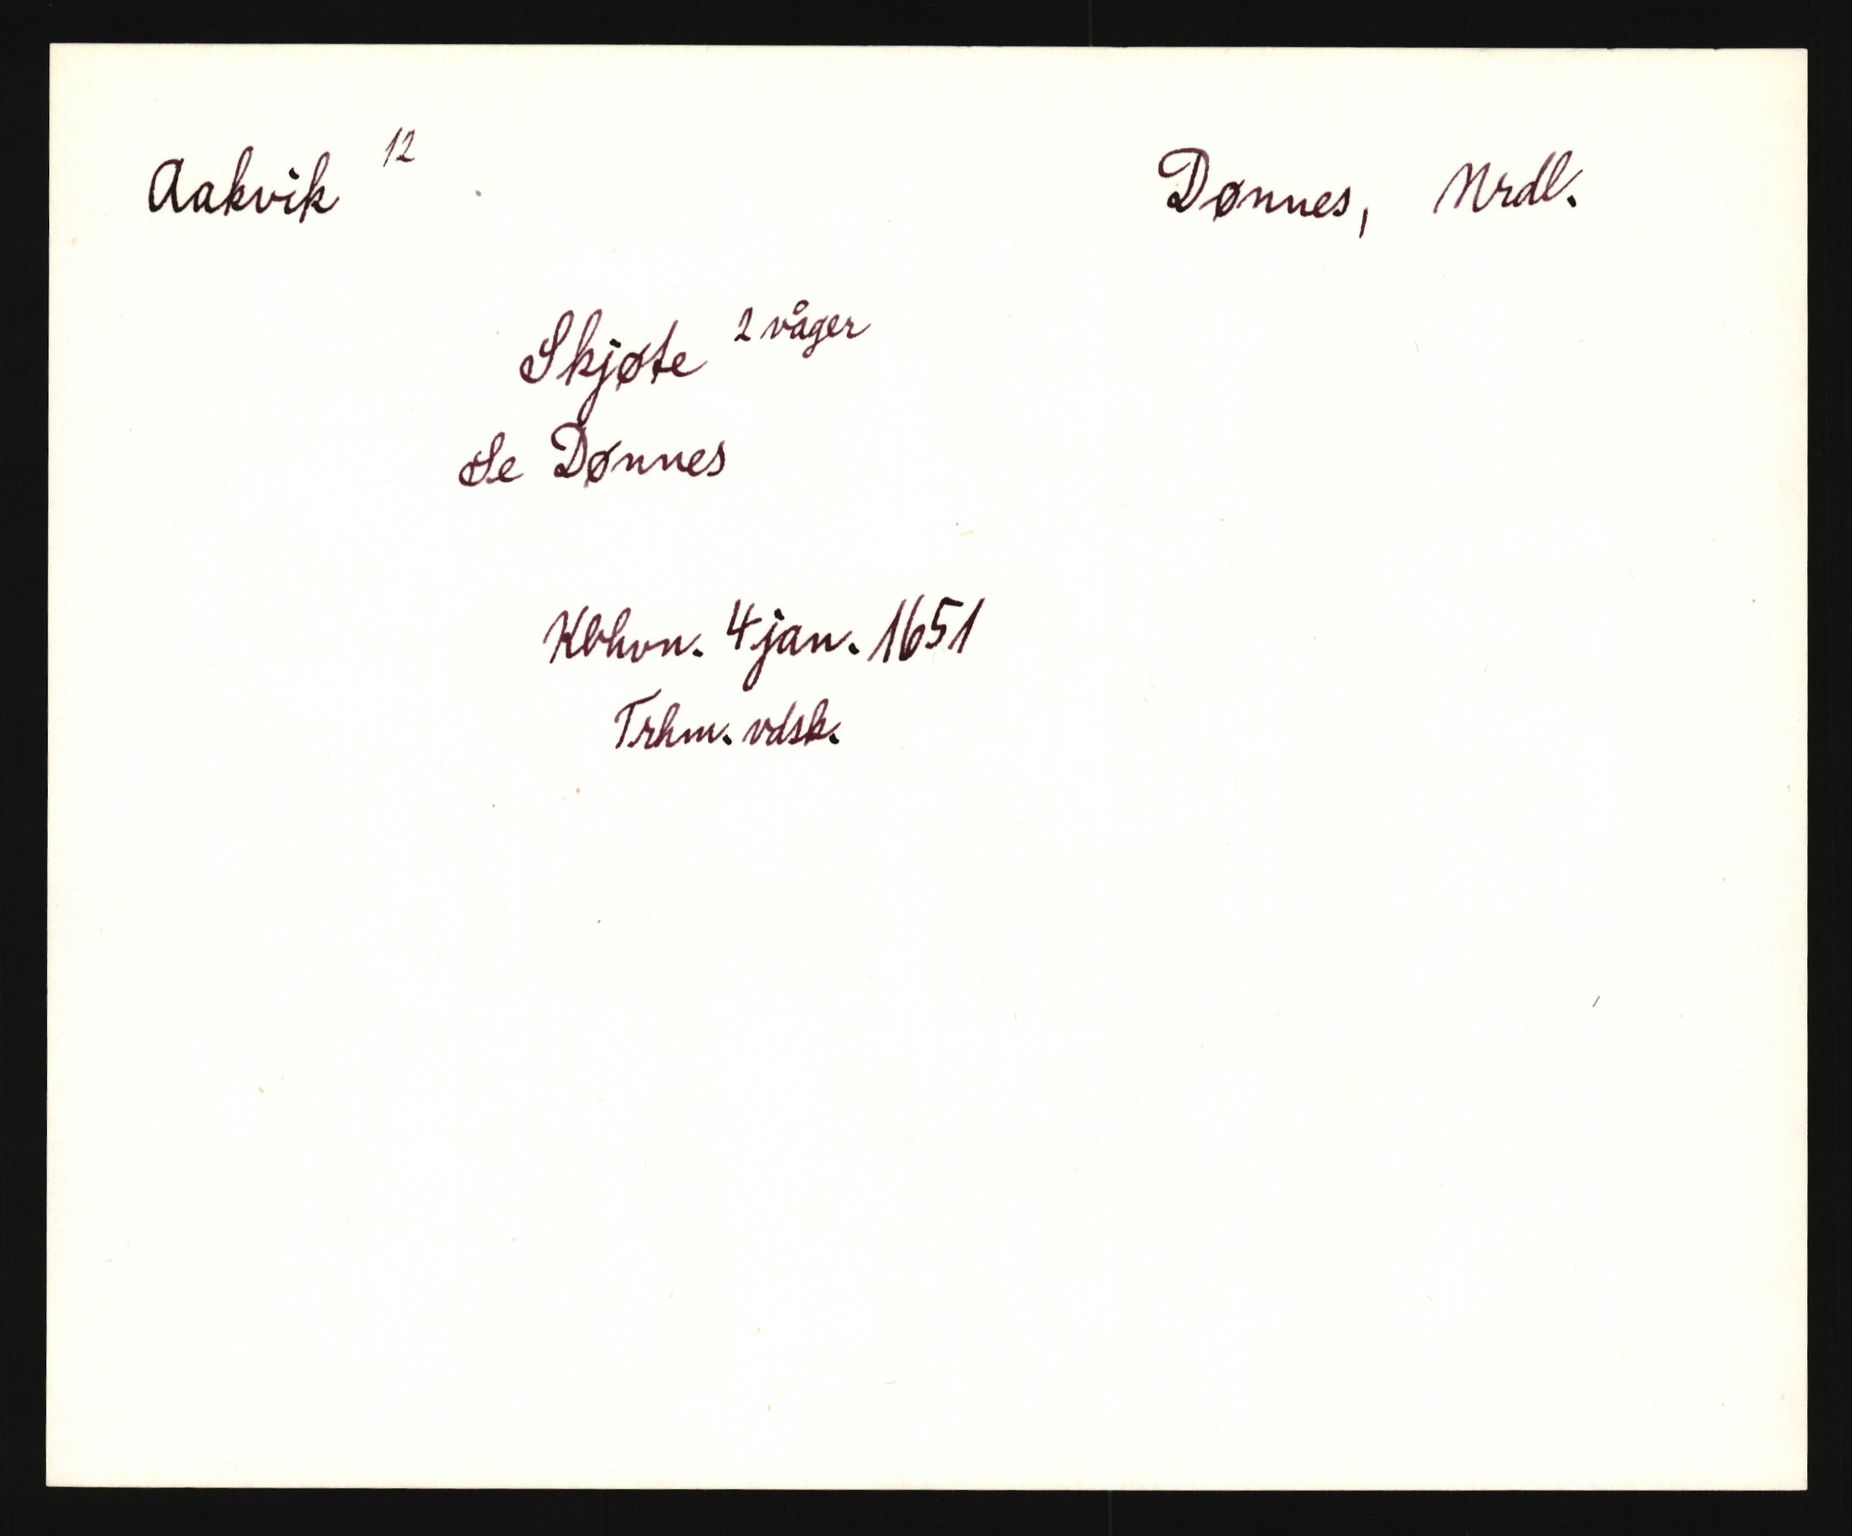 Aakvik 12 Dønnes, Nrdl.
Skjøte 2 våger
Se Dønnes
Kbhvn. 4 jan. 1651
Trhm. vdsk.